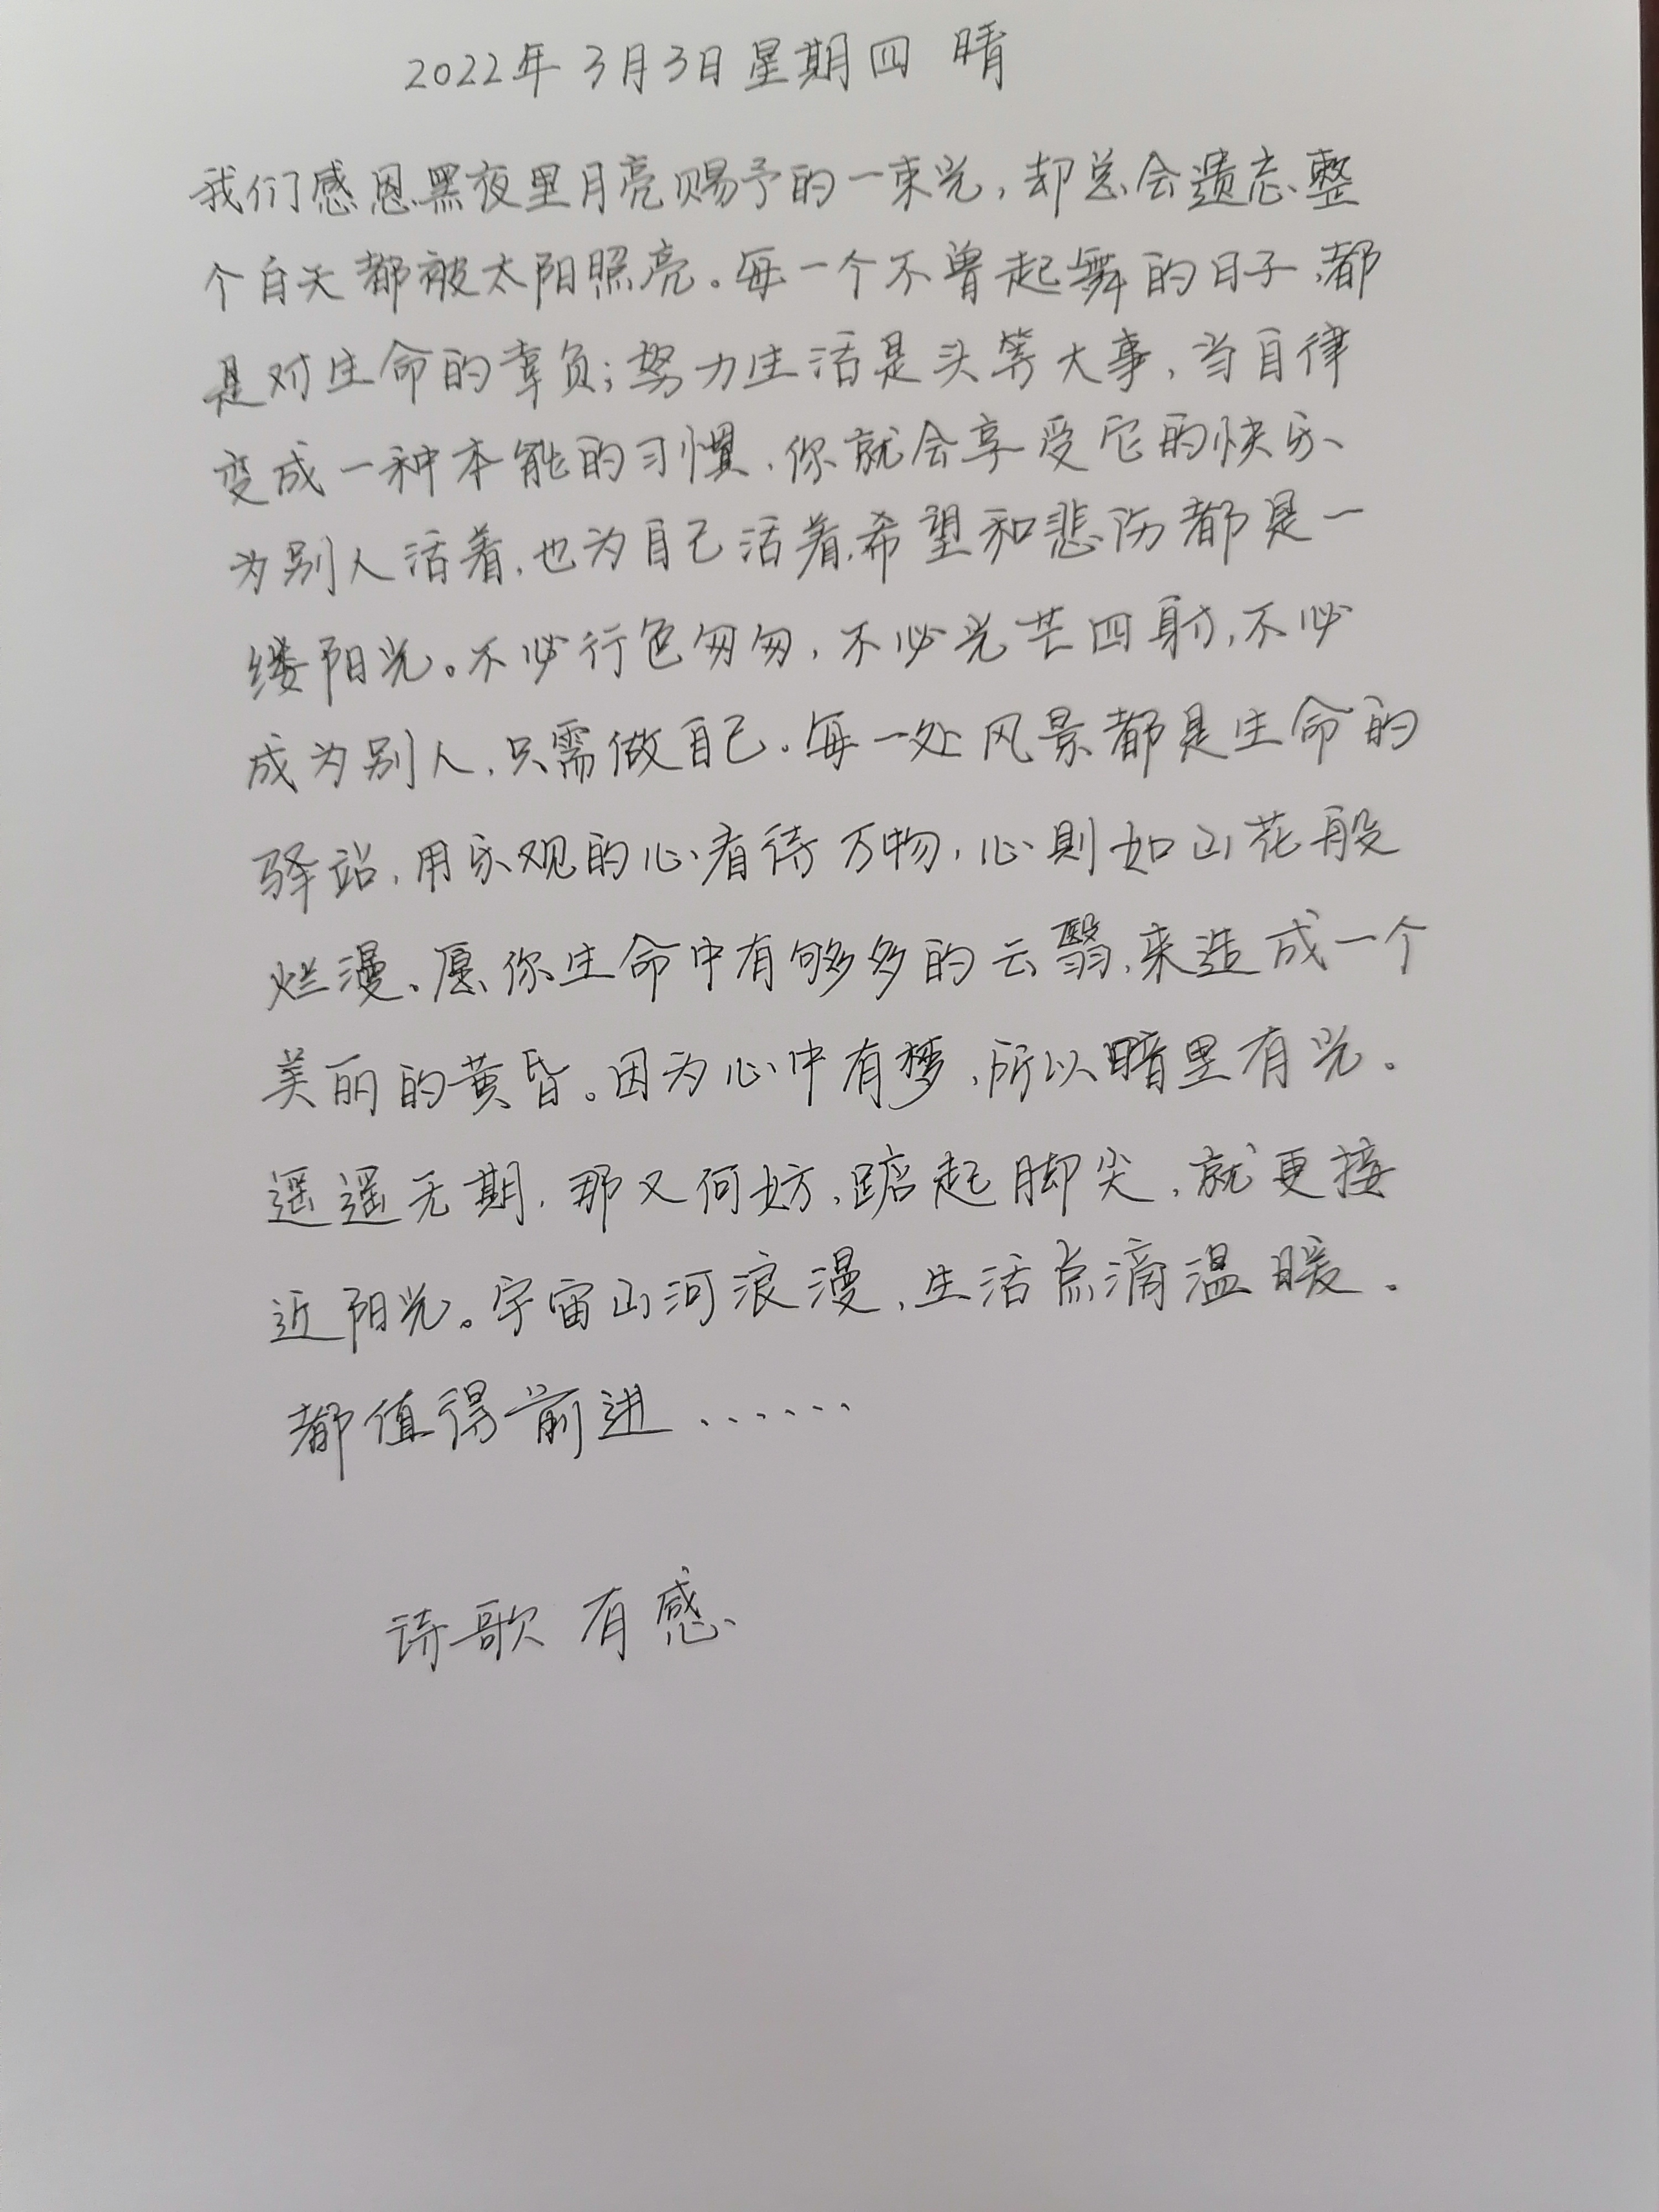 2022年3月3日星期四 晴
我们感恩黑夜里月亮赐予的一束光，却总会遗忘整
个白天都被太阳照亮。每一个不曾起舞的日子，都
是对生命的辜负；努力生活是头等大事，当自律
变成一种本能的习惯，你就会享受它的快乐、
为别人活着，也为自己活着，希望和悲伤都是一
缕阳光。不必行色匆匆，不必光芒四射，不必
成为别人，只需做自己。每一处风景都是生命的
驿站，用乐观的心看待万物，心则如山花般
烂漫。愿你生命中有够多的云翳，来造成一个
美丽的黄昏。因为心中有梦，所以暗里有光。
遥遥无期，那又何妨，踮起脚尖，就更接
近阳光。宇宙山河浪漫，生活点滴温暖。
都值得前进……
诗歌 有感